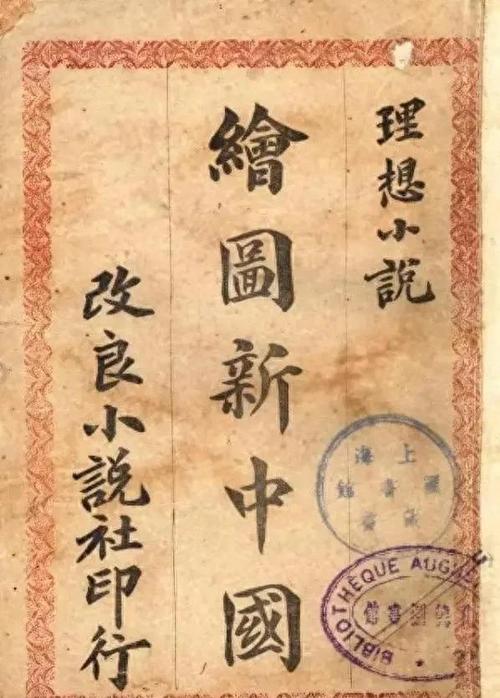 理想小說
繪圖新中國
改良小說社印行
上海
圖書館
藏書
BIBLIOTHÈQUE